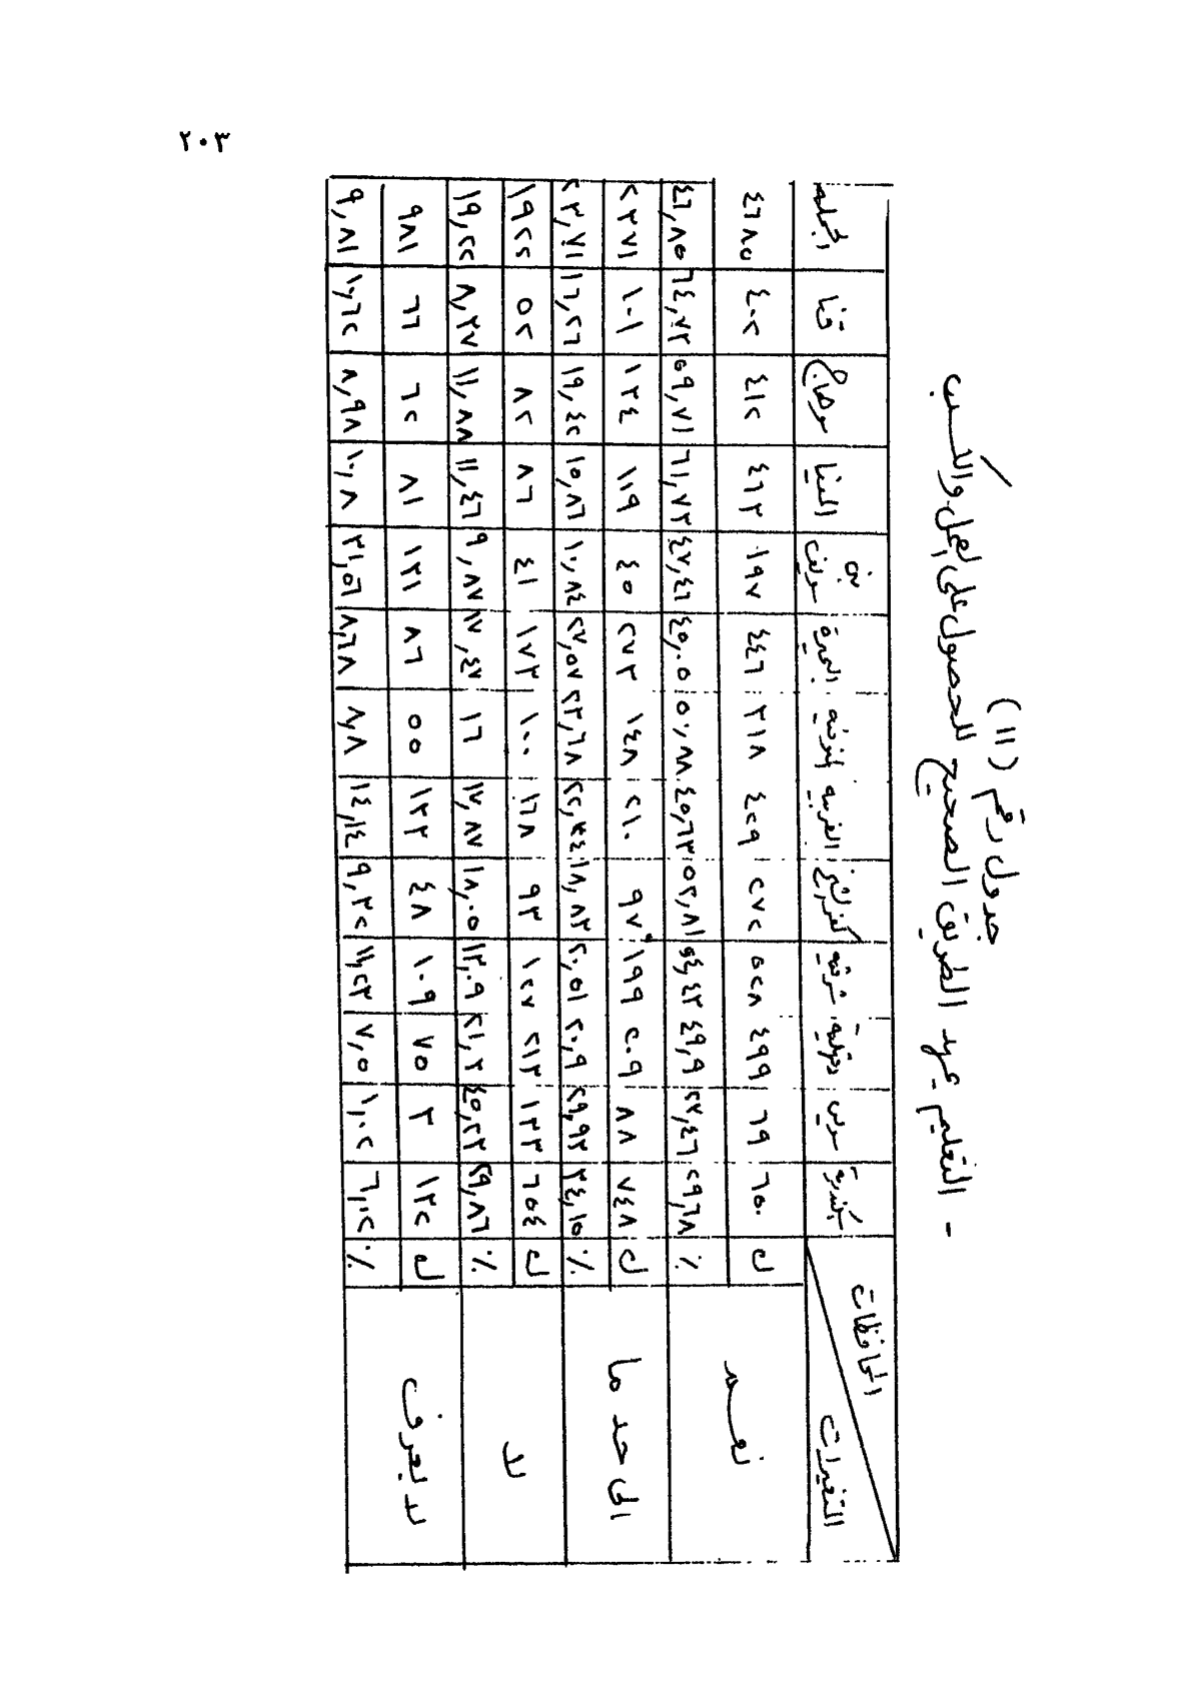 ٢٠٣
جدول رقم (١١)
- التعليم يمهد الطريق الصحيح للحصول على العمل والكسب
المتغيرات المحافظات سكندرية سويس دقهلية شرقية كفر الشيخ الغربية المنوفية البحيرة بنى سويف المنيا سوهاج قنا الجملة
نعم ك ٦٥٠ ٦٩ ٤٩٩ ٥٢٨ ٢٧٢ ٤٢٩ ٣١٨ ٤٤٦ ١٩٧ ٤٦٣ ٤١٢ ٤٠٢ ٤٦٨٥
% ٢٩,٦٨ ٢٣,٤٦ ٤٩,٩ ٥٤,٤٣ ٥٢,٨١ ٤٥,٦٣ ٥٠,٨٨ ٤٥,٠٥ ٤٧,٤٦ ٦١,٧٣ ٥٩,٧١ ٦٤,٧٣ ٤٦,٨٥
الى حد ما ك ٧٤٨ ٨٨ ٢٠٩ ١٩٩ ٩٧ ٢١٠ ١٤٨ ٢٧٣ ٤٥ ١١٩ ١٣٤ ١٠١ ٢٣٧١
% ٣٤,١٥ ٢٩,٩٣ ٢٠,٩ ٢٠,٥١ ١٨,٨٣ ٢٢,٣٤ ٢٣,٦٨ ٢٧,٥٧ ١٠,٨٤ ١٥,٨٦ ١٩,٤٢ ١٦,٢٦ ٢٣,٧١
لا ك ٦٥٤ ١٣٣ ٢١٣ ١٢٧ ٩٣ ١٦٨ ١٠٠ ١٧٣ ٤١ ٨٦ ٨٢ ٥٢ ١٩٢٢
% ٢٩,٨٦ ٤٥,٢٣ ٢١,٣ ١٣,٠٩ ١٨,٠٥ ١٧,٨٧ ١٦ ١٧,٤٧ ٩,٨٧ ١١,٤٦ ١١,٨٨ ٨,٣٧ ١٩,٢٢
لا يعرف ك ١٣٢ ٣ ٧٥ ١٠٩ ٤٨ ١٣٣ ٥٥ ٨٦ ١٣١ ٨١ ٦٢ ٦٦ ٩٨١
% ٦,٠٢ ١,٠٢ ٧,٥ ١١,٢٣ ٩,٣٢ ١٤,١٤ ٨,٨ ٨,٦٨ ٣١,٥٦ ١٠,٨ ٨,٩٨ ١٠,٦٢ ٩,٨١